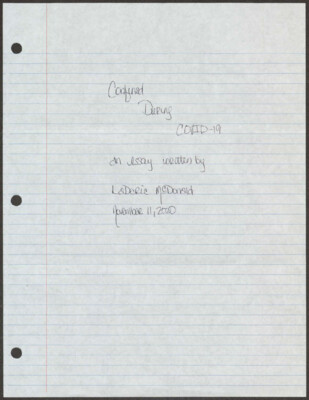 Confined
During
COVID-19
An essay written by
LaDeric McDonald
November 11, 2020